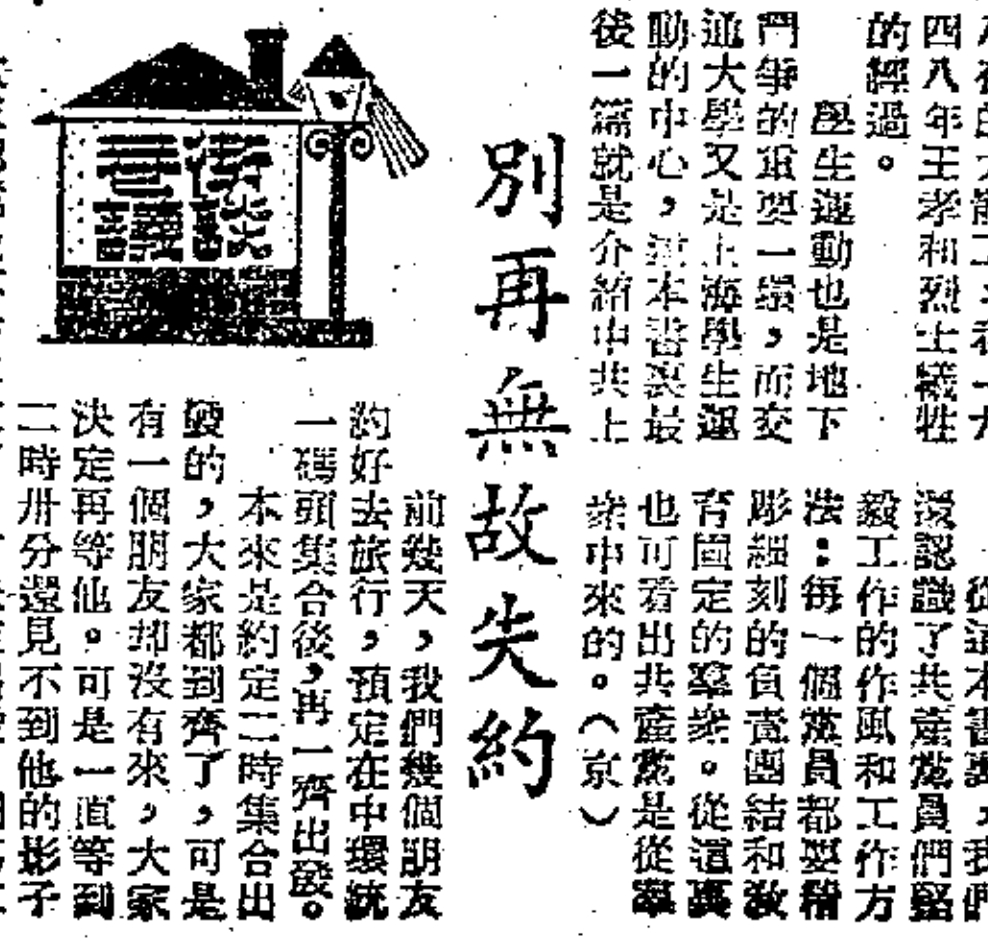 四八年王孝和烈士犧牲
的經過。
學生運動也是地下
鬥爭的重要一環,而交
通大學又是上海學生運
動的中心,這本書裏最
後一篇就是介紹中共上
從這本書裏,我們
還認識了共產黨員們堅
毅工作的作風和工作方
法:每一個黨員都要精
彫細刻的負責團結和教
育固定的羣衆。從這裏
也可看出共產黨是從羣
衆中來的。(京)
街談
巷議
別再無故失約
前幾天,我們幾個朋友
約好去旅行,預定在中環統
一碼頭集合後,再一齊出發。
本來是約定二時集合出
發的,大家都到齊了,可是
有一個朋友却沒有來,大家
決定再等他。可是一直等到
二時卅分還見不到他的影子